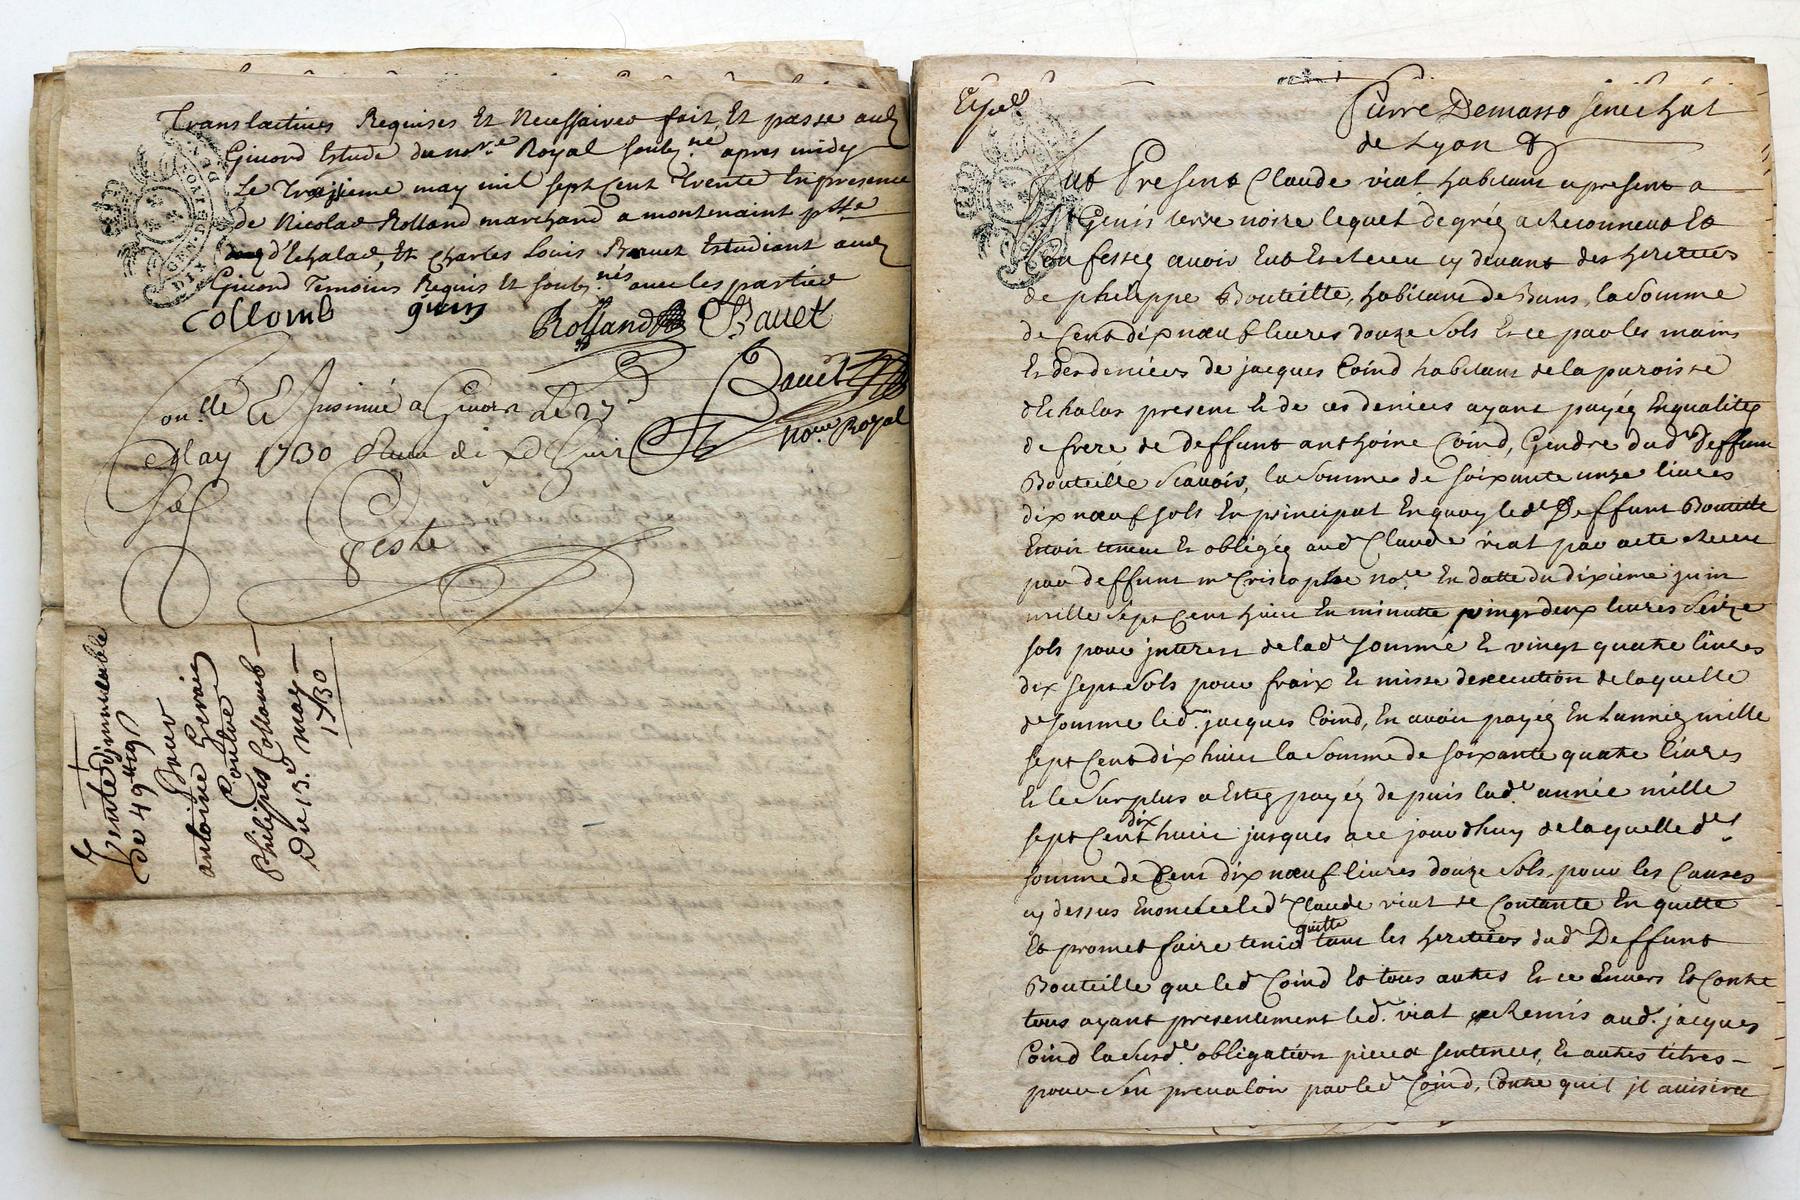 Translatives Requises Et Necessaires fait Et passé aud
Givord Estude du no.re Royal soub.né apres midy
Le Treizieme may mil sept Cent Trente En presence
de Nicolas Rolland marchand a montenaint
d'Echalas, Et Charles Louis Bauet Estudiant aud
Givord Temoins Requis Et soub.nés auec les parties
collomb
Rolland Bauet
Bauet
no.re Royal
Con.llé Et Insinué a Givors Le 27
May 1730 Receu dix huit
sol
Teste
Vente d'jmmeuble
de 49 19
Pour
antoine Gervais
Contre
Philipes Collomb
Du 13. may
1730
Expd
Pierre Demasso senechal
de Lyon &
fut Present Claude viat habitant a present a
st Genis terre noire lequel de gré a Reconneut Et
Confessé avoir Eut Et Receu cy devant des heritiers
de philippe Bouteille, habitant de Bans, la somme
de Cent dix nœuf liures douze sols Et ce par les mains
Et des deniers de jacques Coind habitant de la paroisse
d'Echalas present Et de ces deniers ayant payéz En qualité
de frere de deffunt anthoine Coind, Gendre dud. deffunt
Bouteille scauoir, la somme de soixante unze liures
dix nœuf sols En principal En quoy led. Deffunt Bouteille
Estoit tenu Et obligéz aud Claude viat par acte Receu
par deffunt me Cristophe no.re En datte du dixieme juin
mille sept Cent huit En minutte vingt deux liures seize
sols pour jnterest de lad. somme Et vingt quatre liures
dix sept sols pour fraix Et misse dexecution de laquelle
de somme led. jacques Coind, En avoir payéz En lannéz mille
sept Cent dix huit la somme de soixante quatre liures
Et le surplus a Estéz payéz de puis lad. année mille
sept Cent dix huit jusques a ce jourdhuy de laquelle de
somme de Cent dix nœuf liures douze sols pour les Causes
cy dessus Enoncée led. Claude viat se Contante En quitte
Et promet faire tenir quitte tant les heritiers dud Deffunt
Bouteille que led Coind Et tous autres Et ce Enuers Et Contre
tous ayant presentement led. viat Remis aud. jacques
Coind la susde. obligation pieces sentences, Et autres titres
pour s'en preualoir par led Coind, Contre qu'il jl auisira